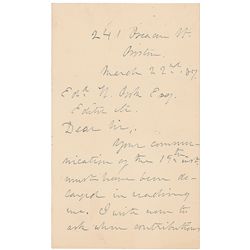 241 Beacon St.
Boston
March 22nd. '87.
Edw. N. Bok Esq.
Editor &c.
Dear Sir,
Your commu-
nication of the 19th inst.
must have been de-
layed in reaching
me. I write now to
ask when contributions